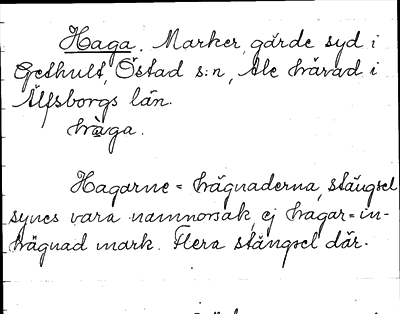 Haga. Marker, gärde syd i
Gethult, Östad s:n, Ale härad i
Älfsborgs län.
hàga.
Hagarne = hägnaderna, stängsel
synes vara namnorsak, ej hagar = in-
hägnad mark. Flera stängsel där.